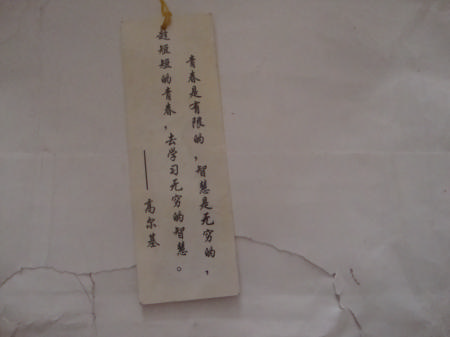 青春是有限的，智慧是无穷的，
趁短短的青春，去学习无穷的智慧。
——高尔基